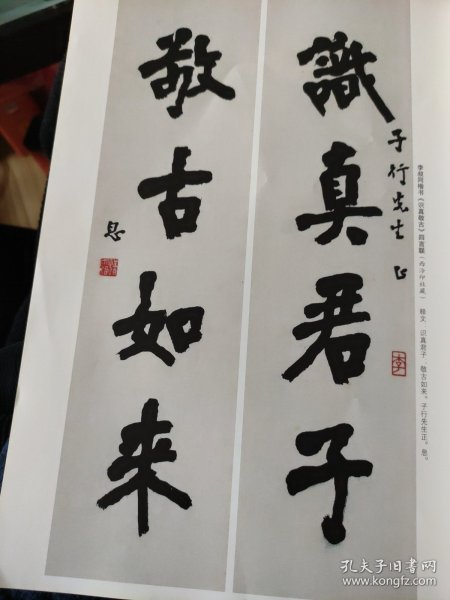 李叔同楷书《识真敬古》四言联（西泠印社藏） 释文：识真君子，敬古如来。子行先生正。息。
識真君子
子行先生正
李
敬古如来
息
孔夫子旧书网
www.kongfz.com